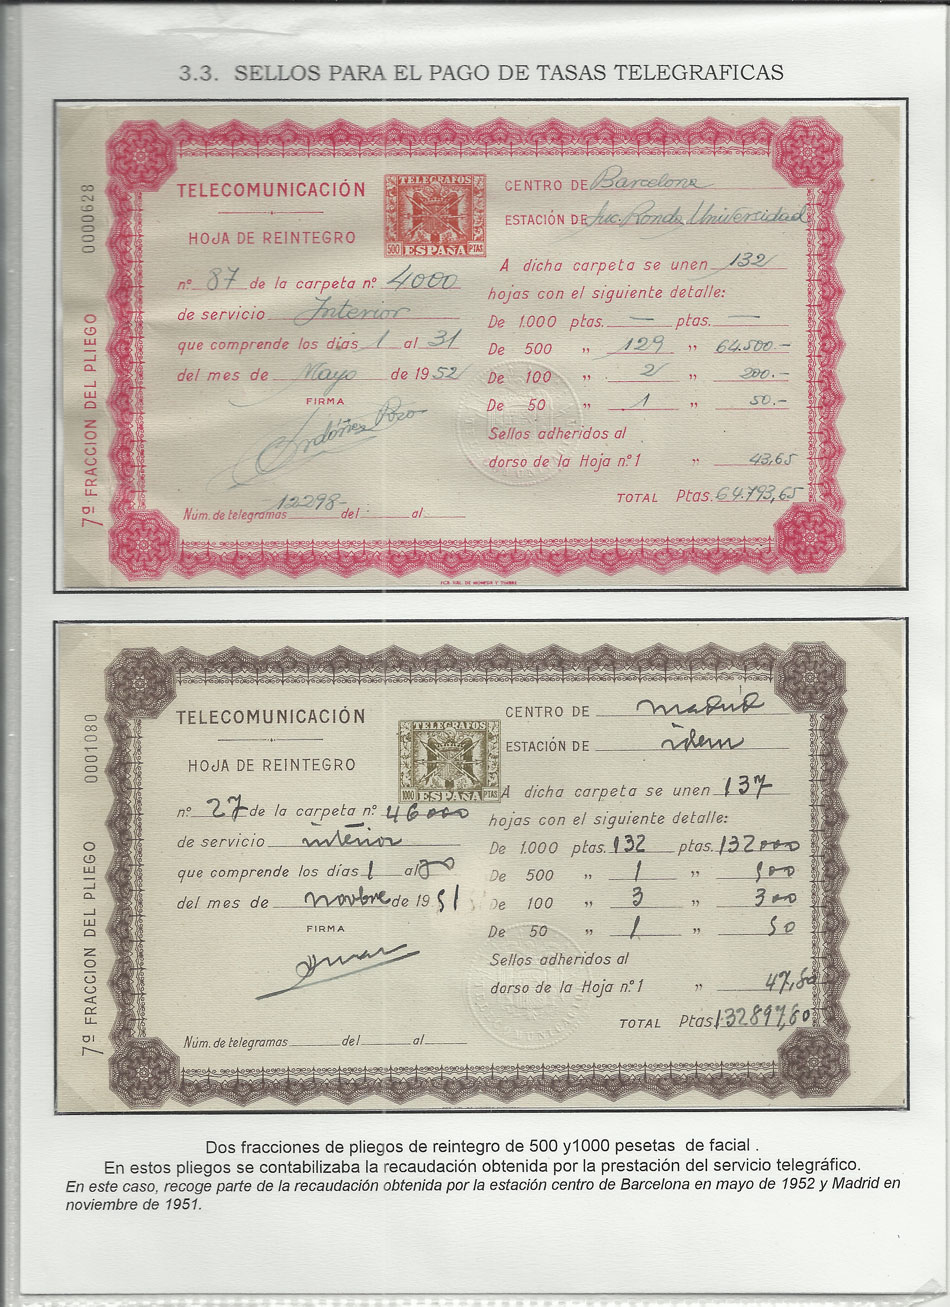 3.3. SELLOS PARA EL PAGO DE TASAS TELEGRAFICAS
7ª FRACCION DEL PLIEGO 0000628
TELECOMUNICACIÓN
HOJA DE REINTEGRO
TELEGRAFOS
500 ESPAÑA PTAS
nº 87 de la carpeta nº 4000
de servicio Interior
que comprende los días 1 al 31
del mes de Mayo de 1952
FIRMA
Ordóñez Pozo
Núm. de telegramas 12298- del al
CENTRO DE Barcelona
ESTACIÓN DE Suc. Ronda Universidad
A dicha carpeta se unen 132
hojas con el siguiente detalle:
De 1.000 ptas. — ptas. —
De 500 " 129 " 64.500.-
De 100 " 2 " 200.-
De 50 " 1 " 50.-
Sellos adheridos al
dorso de la Hoja nº 1 " 43,65
TOTAL Ptas. 64.793,65
FCA. NAL. DE MONEDA Y TIMBRE
7ª FRACCION DEL PLIEGO 0001080
TELECOMUNICACIÓN
HOJA DE REINTEGRO
TELEGRAFOS
1000 ESPAÑA PTAS
nº 27 de la carpeta nº 46000
de servicio interior
que comprende los días 1 al 30
del mes de novbre de 1951
FIRMA
Núm. de telegramas del al
CENTRO DE Madrid
ESTACIÓN DE idem
A dicha carpeta se unen 137
hojas con el siguiente detalle:
De 1.000 ptas. 132 ptas. 132000
De 500 " 1 " 500
De 100 " 3 " 300
De 50 " 1 " 50
Sellos adheridos al
dorso de la Hoja nº 1 " 47,60
TOTAL Ptas. 132897,60
Dos fracciones de pliegos de reintegro de 500 y1000 pesetas de facial .
En estos pliegos se contabilizaba la recaudación obtenida por la prestación del servicio telegráfico.
En este caso, recoge parte de la recaudación obtenida por la estación centro de Barcelona en mayo de 1952 y Madrid en
noviembre de 1951.